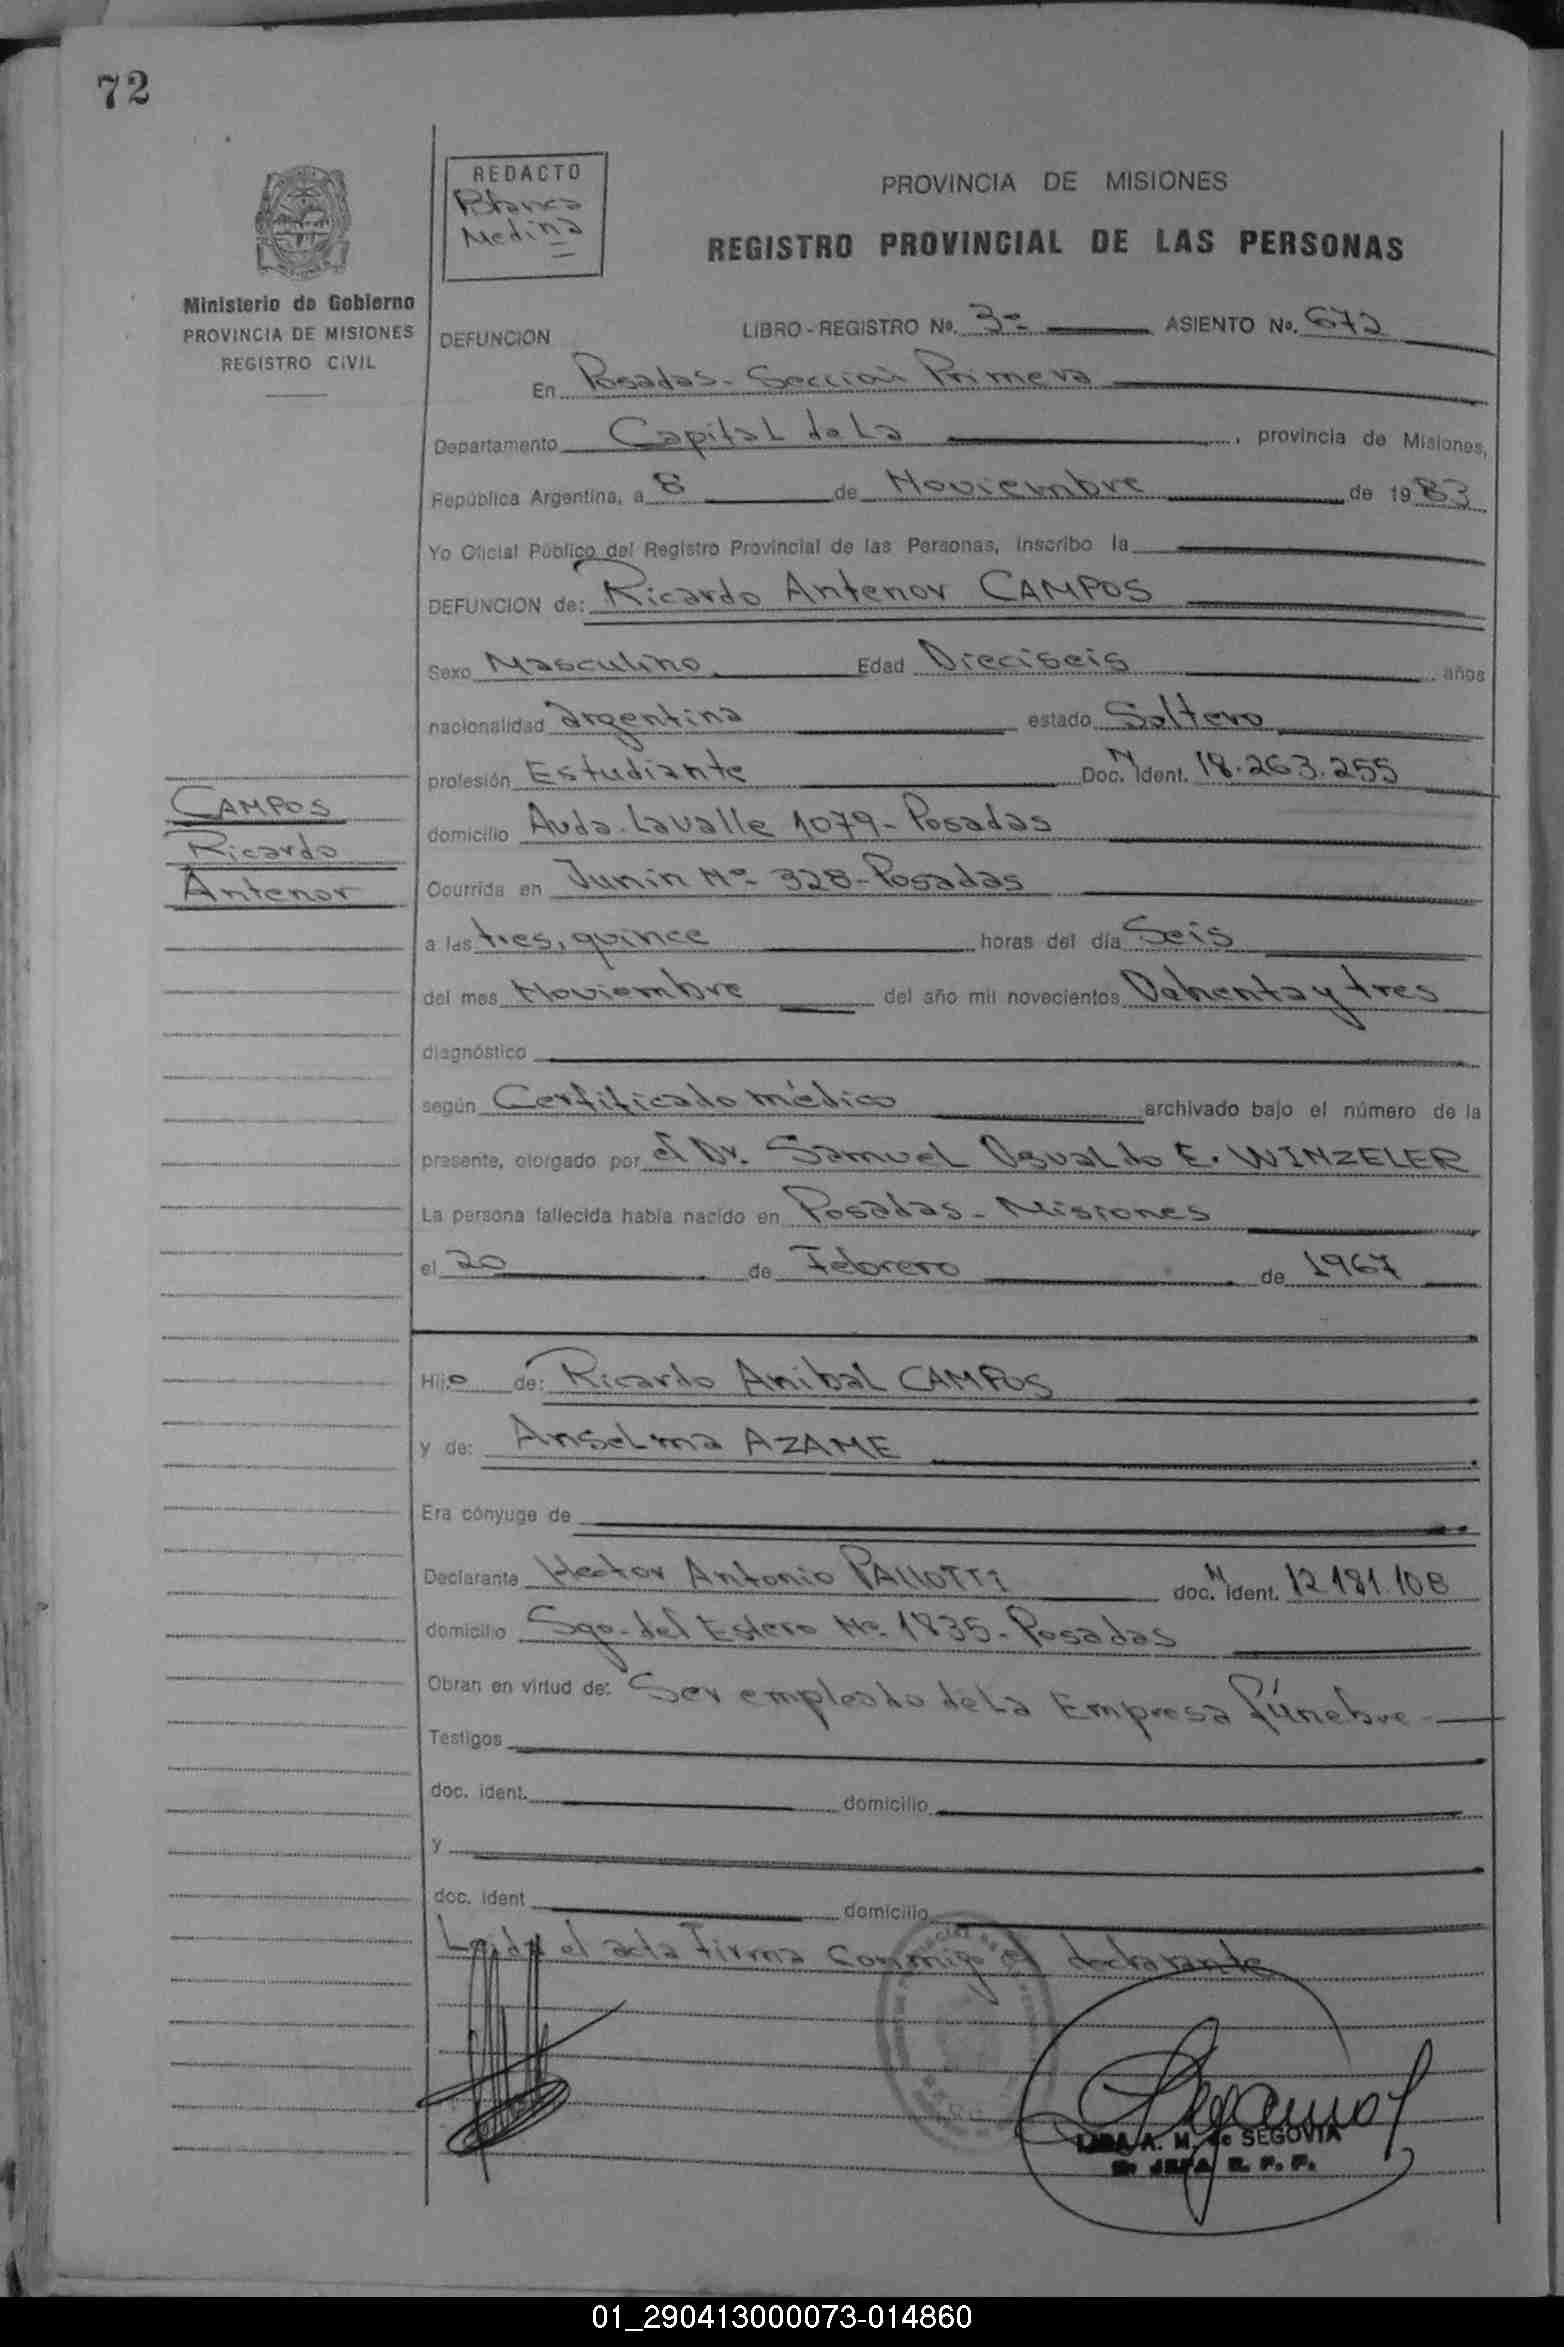 72
REDACTO
Blanca
Medina
PROVINCIA DE MISIONES
REGISTRO PROVINCIAL DE LAS PERSONAS
Ministerio de Gobierno
PROVINCIA DE MISIONES
REGISTRO CIVIL
DEFUNCION LIBRO - REGISTRO No. 3º ASIENTO No. 672
En Posadas - Sección Primera
Departamento Capital de La , provincia de Misiones,
República Argentina, a 8 de Noviembre de 1983
Yo Oficial Público del Registro Provincial de las Personas, inscribo la
DEFUNCION de: Ricardo Antenor CAMPOS
Sexo Masculino Edad Dieciseis años
nacionalidad argentina estado Soltero
profesión Estudiante Doc. N Ident. 18.263.255
CAMPOS
Ricardo
Antenor
domicilio Avda. Lavalle 1079 - Posadas
Ocurrida en Junin Nº 328 - Posadas
a las tres, quince horas del día Seis
del mes Noviembre del año mil novecientos Ochenta y tres
diagnóstico
según Certificado médico archivado bajo el número de la
presente, otorgado por el Dr. Samuel Osvaldo E. WINZELER
La persona fallecida había nacido en Posadas - Misiones
el 20 de Febrero de 1967
Hijo de: Ricardo Anibal CAMPOS
y de: Anselma AZAME
Era cónyuge de
Declarante Hector Antonio PALLOTTI doc. N ident. 12.181.108
domicilio Sgo. del Estero Nº 1835 - Posadas
Obran en virtud de: Ser empleado de La Empresa fúnebre
Testigos
doc. ident. domicilio
y
doc. ident domicilio
Leida el acta firma conmigo el declarante
A. M. de SEGOVIA
JEFA R. P. P.
01_290413000073-014860